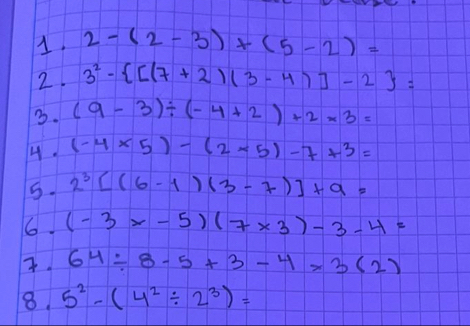 1. 2 - (2 - 3) + (5 - 2) =
2. 3² - {[(7 + 2)(3 - 4)] - 2} =
3. (9 - 3) ÷ (-4 + 2) + 2 × 3 =
4. (-4 × 5) - (2 × 5) - 7 + 3 =
5. 2³ [(6 - 1)(3 - 7)] + 9 =
6. (-3 × -5)(7 × 3) - 3 - 4 =
7. 64 ÷ 8 - 5 + 3 - 4 × 3(2)
8. 5² - (4² ÷ 2³) =